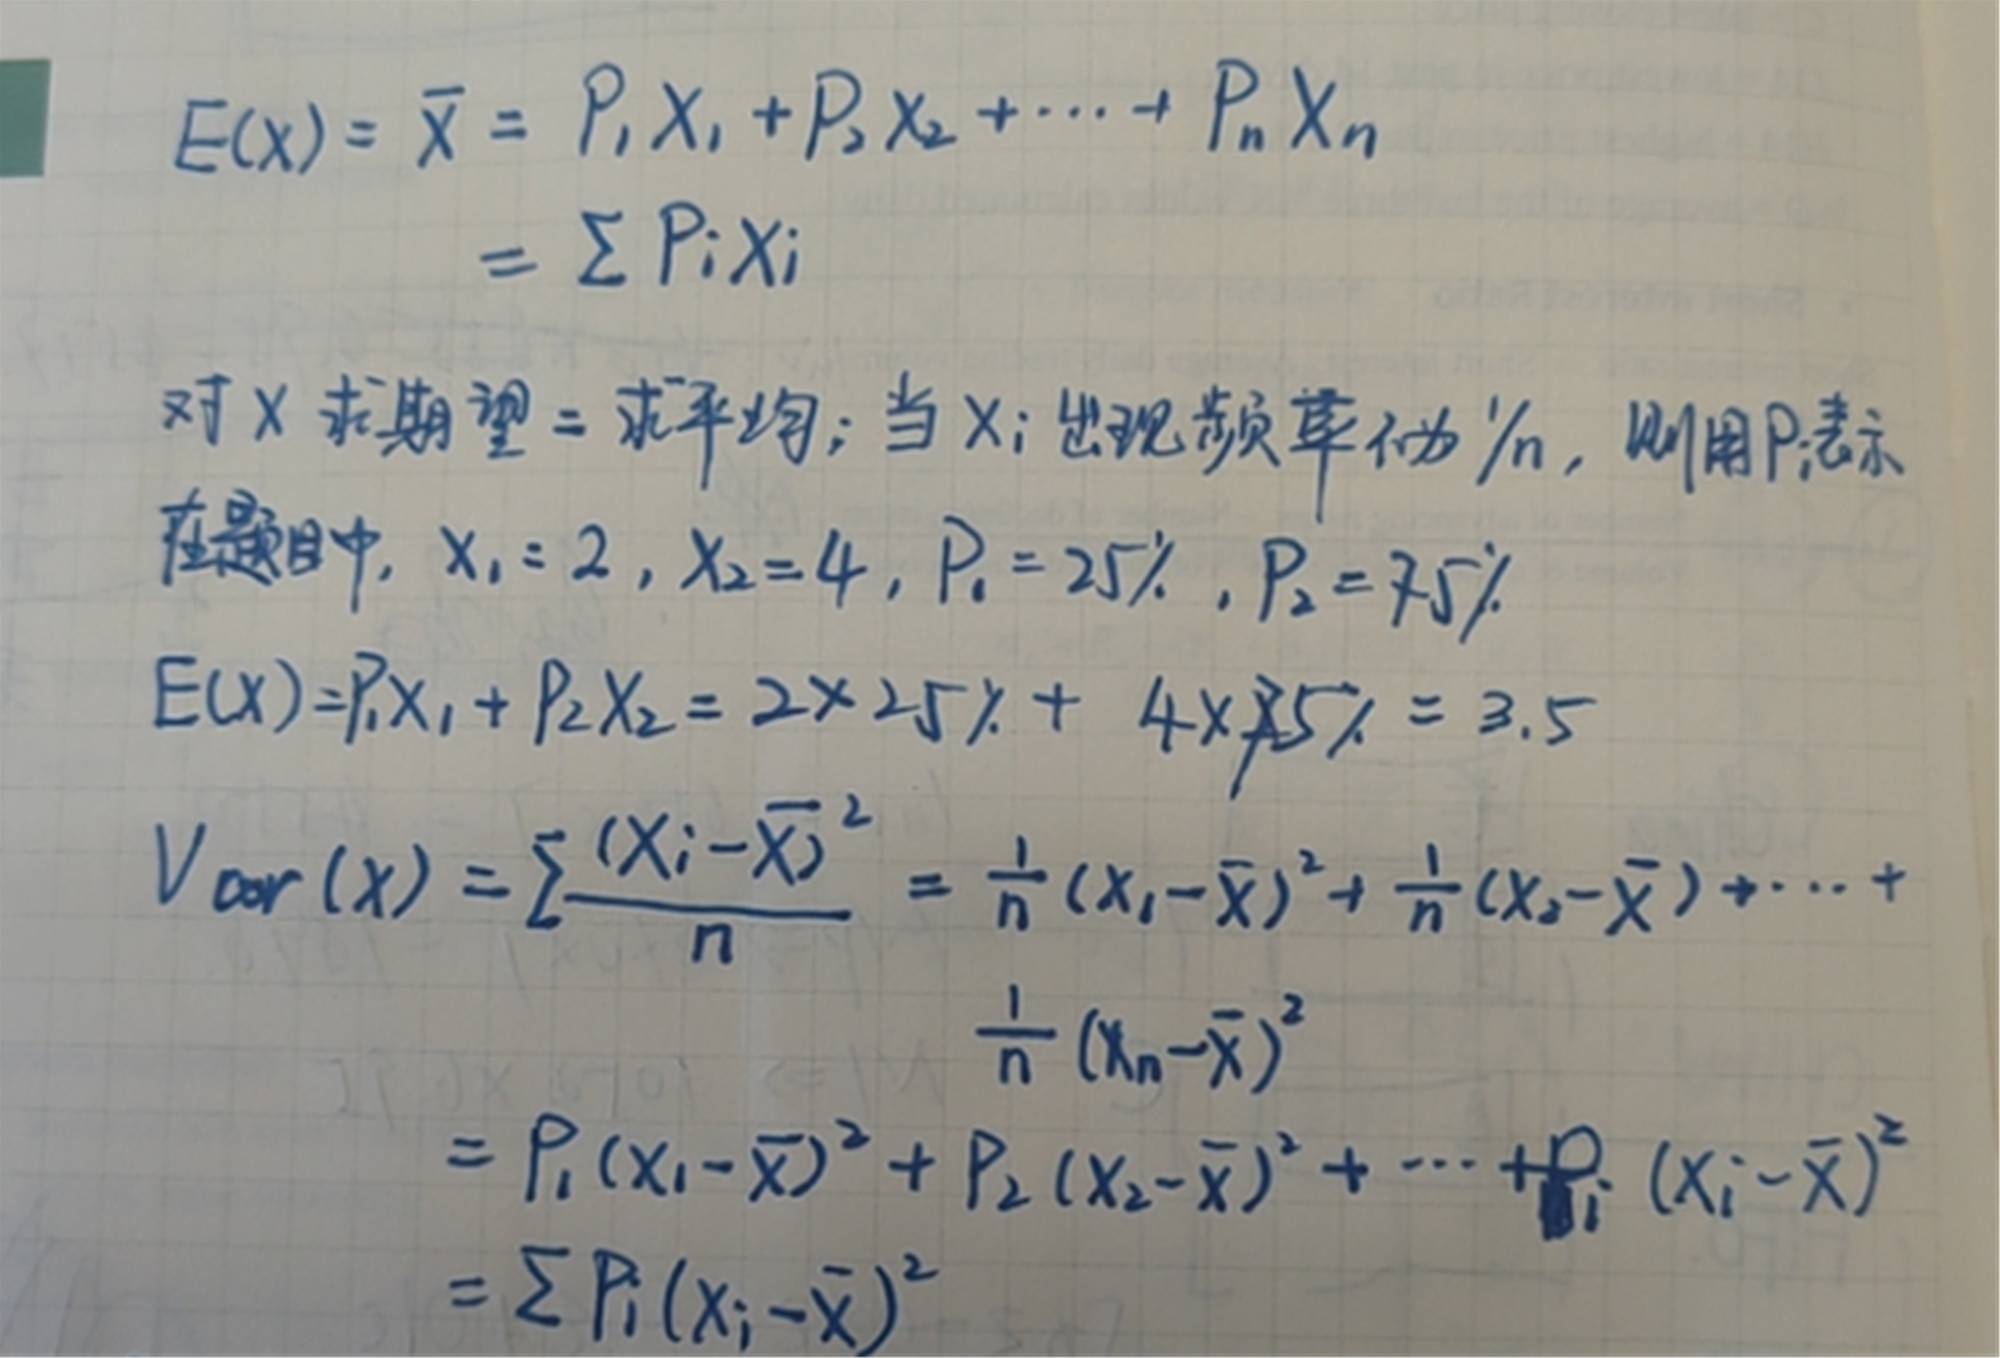 E(X) = X̄ = P₁X₁ + P₂X₂ + ··· + PₙXₙ
= Σ PᵢXᵢ
对 X 求期望 = 求平均; 当 Xᵢ 出现频率不为 1/n, 则用Pᵢ表示
在题目中, X₁ = 2, X₂ = 4, P₁ = 25%, P₂ = 75%
E(X) = P₁X₁ + P₂X₂ = 2 × 25% + 4 × 75% = 3.5
Var(X) = Σ (Xᵢ - X̄)² / n = 1/n (X₁ - X̄)² + 1/n (X₂ - X̄) + ··· +
1/n (Xₙ - X̄)²
= P₁(X₁ - X̄)² + P₂(X₂ - X̄)² + ··· + Pᵢ(Xᵢ - X̄)²
= Σ Pᵢ(Xᵢ - X̄)²